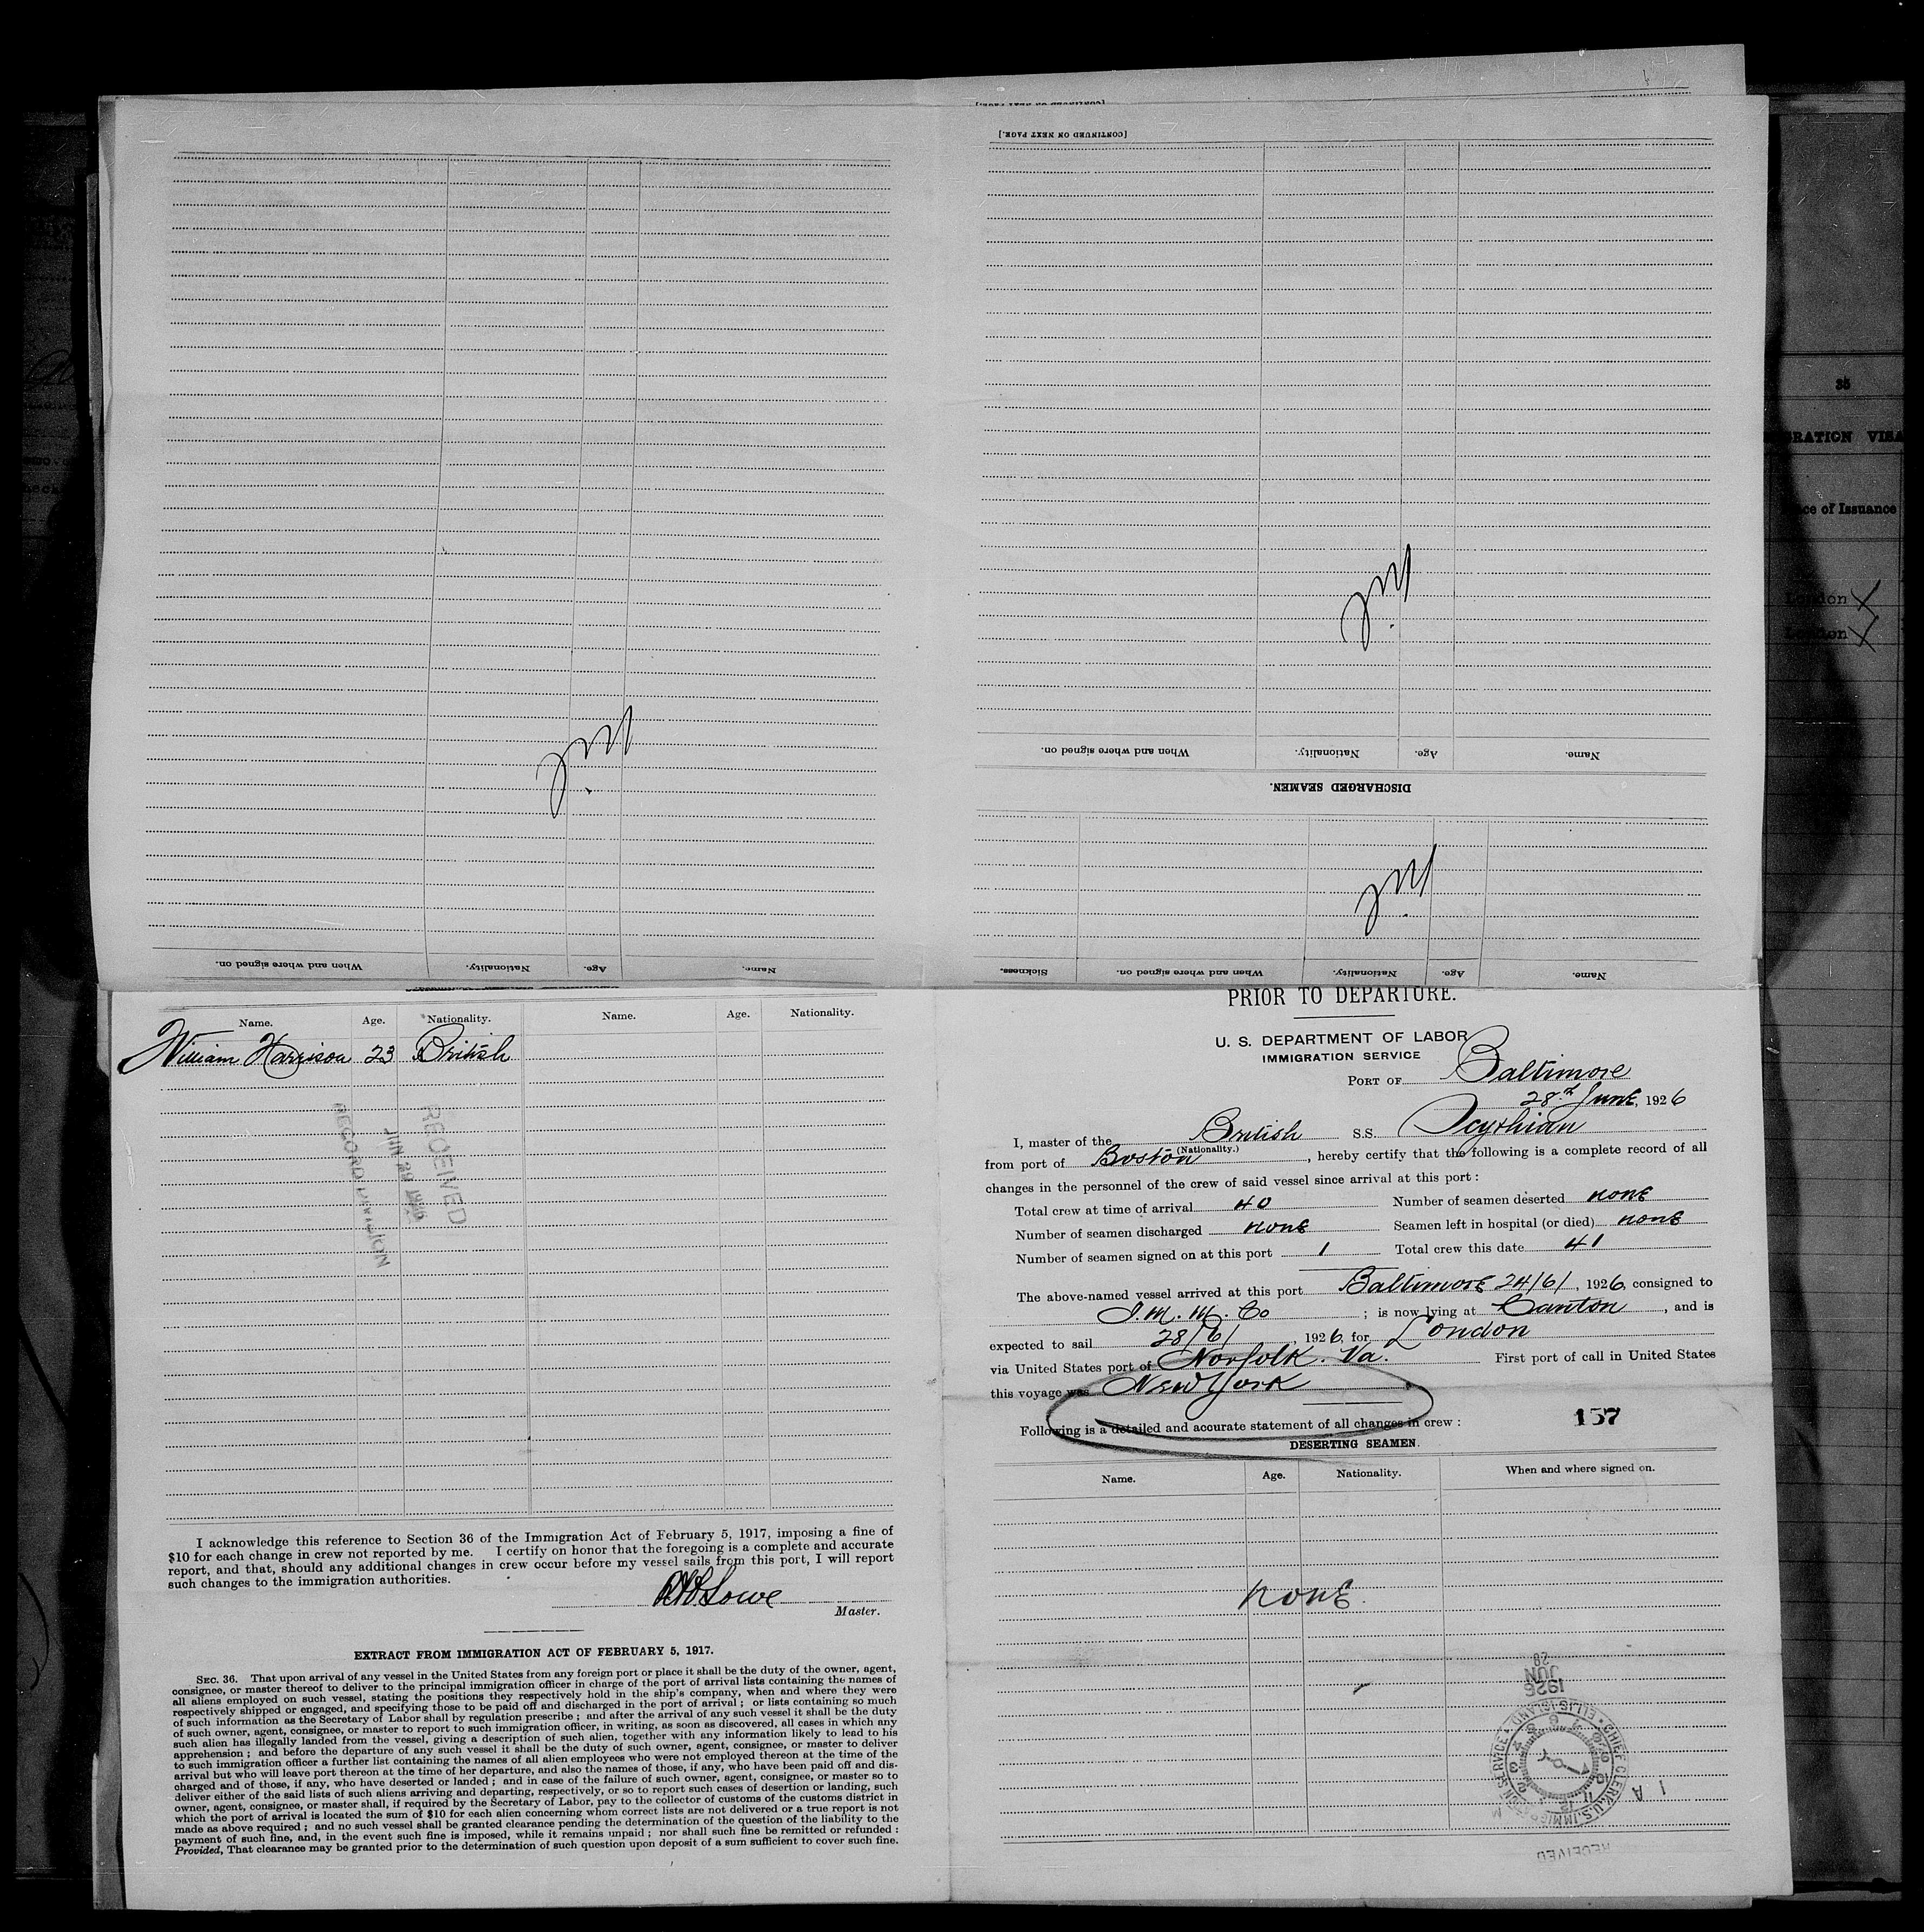 [CONTINUED ON NEXT PAGE.]
When and where signed on. Nationality. Age. Name.
DISCHARGED SEAMEN.
Sickness. When and where signed on. Nationality. Age. Name.
When and where signed on. Nationality. Age. Name.
Name. Age. Nationality. Name. Age. Nationality.
William Harrison 23 British
RECEIVED
RECORD DIVISION
I acknowledge this reference to Section 36 of the Immigration Act of February 5, 1917, imposing a fine of
$10 for each change in crew not reported by me. I certify on honor that the foregoing is a complete and accurate
report, and that, should any additional changes in crew occur before my vessel sails from this port, I will report
such changes to the immigration authorities.
Lowe
Master.
EXTRACT FROM IMMIGRATION ACT OF FEBRUARY 5, 1917.
SEC. 36. That upon arrival of any vessel in the United States from any foreign port or place it shall be the duty of the owner, agent,
consignee, or master thereof to deliver to the principal immigration officer in charge of the port of arrival lists containing the names of
all aliens employed on such vessel, stating the positions they respectively hold in the ship's company, when and where they were
respectively shipped or engaged, and specifying those to be paid off and discharged in the port of arrival; or lists containing so much
of such information as the Secretary of Labor shall by regulation prescribe; and after the arrival of any such vessel it shall be the duty
of such owner, agent, consignee, or master to report to such immigration officer, in writing, as soon as discovered, all cases in which any
such alien has illegally landed from the vessel, giving a description of such alien, together with any information likely to lead to his
apprehension; and before the departure of any such vessel it shall be the duty of such owner, agent, consignee, or master to deliver
to such immigration officer a further list containing the names of all alien employees who were not employed thereon at the time of the
arrival but who will leave port thereon at the time of her departure, and also the names of those, if any, who have been paid off and dis-
charged and of those, if any, who have deserted or landed; and in case of the failure of such owner, agent, consignee, or master so to
deliver either of the said lists of such aliens arriving and departing, respectively, or so to report such cases of desertion or landing, such
owner, agent, consignee, or master shall, if required by the Secretary of Labor, pay to the collector of customs of the customs district in
which the port of arrival is located the sum of $10 for each alien concerning whom correct lists are not delivered or a true report is not
made as above required; and no such vessel shall be granted clearance pending the determination of the question of the liability to the
payment of such fine, and, in the event such fine is imposed, while it remains unpaid; nor shall such fine be remitted or refunded:
Provided, That clearance may be granted prior to the determination of such question upon deposit of a sum sufficient to cover such fine.
PRIOR TO DEPARTURE.
U. S. DEPARTMENT OF LABOR
IMMIGRATION SERVICE
PORT OF Baltimore
28th June, 1926
I, master of the British S.S. Scythian
(Nationality.)
from port of Boston, hereby certify that the following is a complete record of all
changes in the personnel of the crew of said vessel since arrival at this port:
Total crew at time of arrival 40 Number of seamen deserted none
Number of seamen discharged none Seamen left in hospital (or died) none
Number of seamen signed on at this port 1 Total crew this date 41
The above-named vessel arrived at this port Baltimore 24/6/, 1926, consigned to
I. M. M. Co; is now lying at Canton, and is
expected to sail 28/6/, 1926, for London
via United States port of Norfolk. Va. First port of call in United States
this voyage was New York
Following is a detailed and accurate statement of all changes in crew:
157
DESERTING SEAMEN.
Name. Age. Nationality. When and where signed on.
none.
1926
JUN
28
RECEIVED
35
GRATION VISA
ce of Issuance
London
London